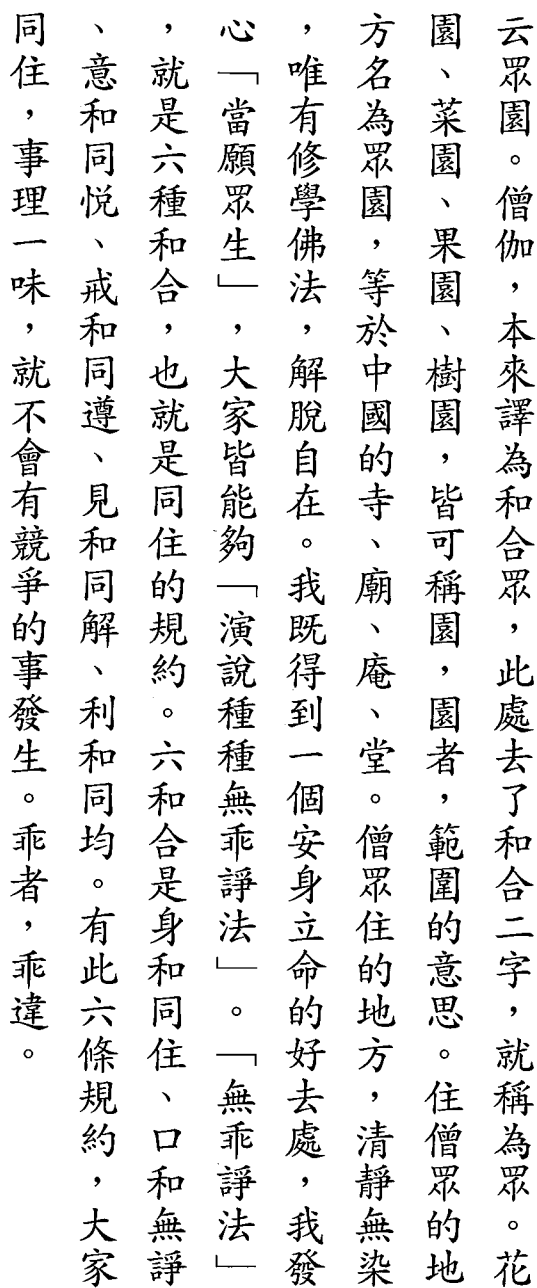 云眾園。僧伽，本來譯為和合眾，此處去了和合二字，就稱為眾。花
園、菜園、果園、樹園，皆可稱園，園者，範圍的意思。住僧眾的地
方名為眾園，等於中國的寺、廟、庵、堂。僧眾住的地方，清靜無染
，唯有修學佛法，解脫自在。我既得到一個安身立命的好去處，我發
心「當願眾生」，大家皆能夠「演說種種無乖諍法」。「無乖諍法」
，就是六種和合，也就是同住的規約。六和合是身和同住、口和無諍
、意和同悅、戒和同遵、見和同解、利和同均。有此六條規約，大家
同住，事理一味，就不會有競爭的事發生。乖者，乖違。